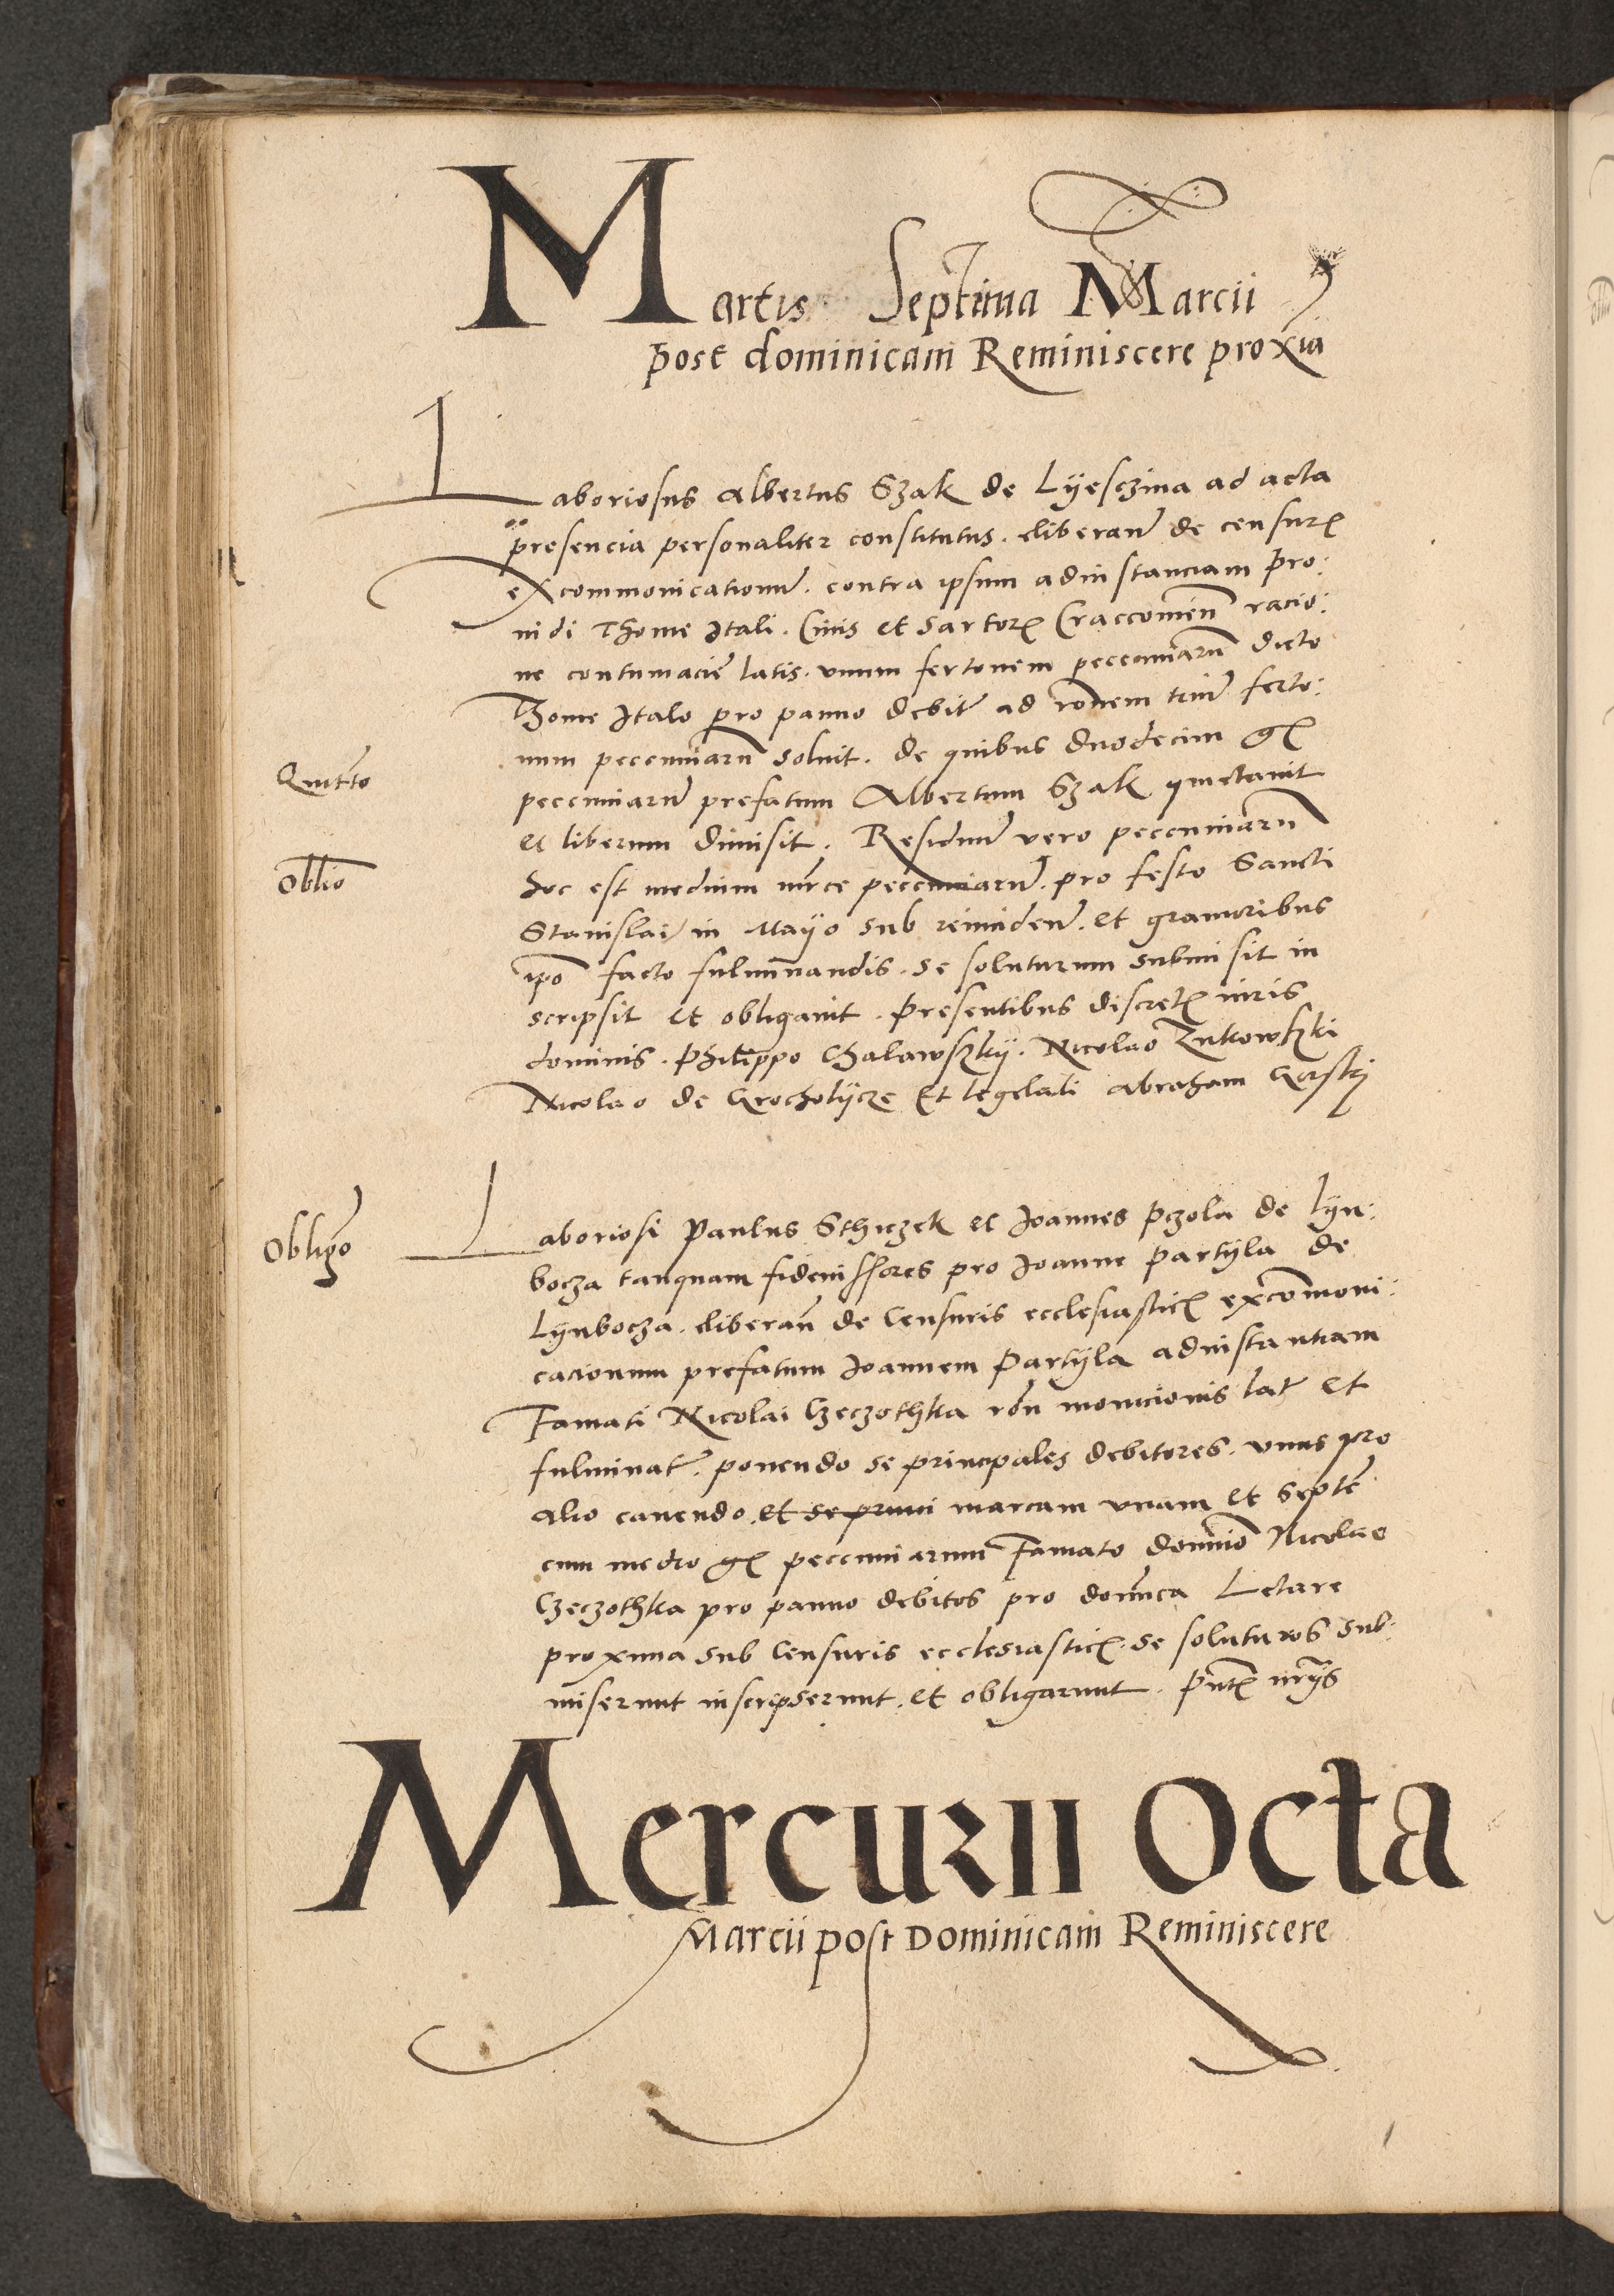 Martis Septima Marcii
post dominicam Reminiscere proxīa
Laboriosus Albertus Szak de Lyesczina ad acta
presencia personaliter constitutus. eliberan̄ de censur̄
excommonicationū. contra ipsum ad instanciam pro:
uidi Thome Itali. Ciuis et sartor̄ Craccouien̄ racio:
ne contumacie latis. vnum fertonem peccuniarū dicto
Thome Italo pro panno debit̄ ad rōnem triū ferto:
num peccuniarū soluit. de quibus duodecim gr̄
Quitt̄o
peccuniarū prefatum Albertum Szak quictauit
et liberum dimisit. Residuū vero peccuniarū
Oblīo
hoc est medium mr̄ce peccuniarū. pro festo Sancti
Stanislai in Mayo sub reinciden̄. et grauioribus
ip̄o facto fulminandis. se soluturum submisit in
scripsit et obligauit. Presentibus discret̄ viris
dominis. Philippo Chalawszky. Nicolao Zukowszki
Nicolao de Grocholycze Et Abraham
Obligō
Laboriosi Paulus Sthiczek et Joannes Pczola de Lyn:
bocza tanquam fideiussores pro Joanne Partyla de
Lynbocza. eliberan̄ de Censuris ecclesiastic̄ excōmoni:
cacionum prefatum Joannem Partyla ad instantiam
Famati Nicolai Czeczothka rōn monicionis lat̄ et
fulminat̄. ponendo se principales debitores. vnus pro
alio cauendo. et se princi marcam vnam et septē
cum medio gr̄ peccuniarum Famato domīno Nicolao
Czeczothka pro panno debitos pro domīca Letare
proxima sub Censuris ecclesiastic̄. se soluturos sub:
miserunt inscripserunt. et obligarunt. Pn̄t̄
Mercurii Octa
Marcii post Dominicam Reminiscere